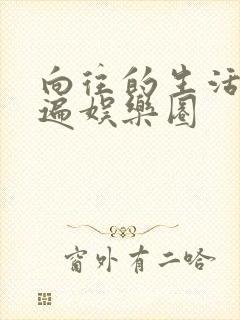 向往的生活
遍娱樂圈
窗外有二哈